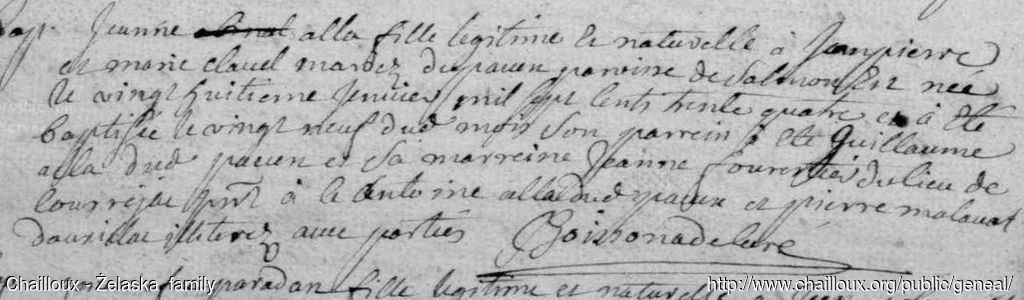 Bap. Jeanne alla fille legitime et naturelle à Jeanpierre
et marie clavel mariez du paueu parroisse de Salmon Est née
le vingt huitieme Jenvier mil sept cents trente quatre et à Eté
baptisée le vingt neuf dud mois son parrein à été Guillaume
alla dud paueu et sa marreine Jeanne du lieu de
pnt à ce Antoine alla dud paueu et pierre malaval
illiterez avec parties Boissonade curé
fille legitime et naturelle
Chailloux - Żelaska family
http://www.chailloux.org/public/geneal/